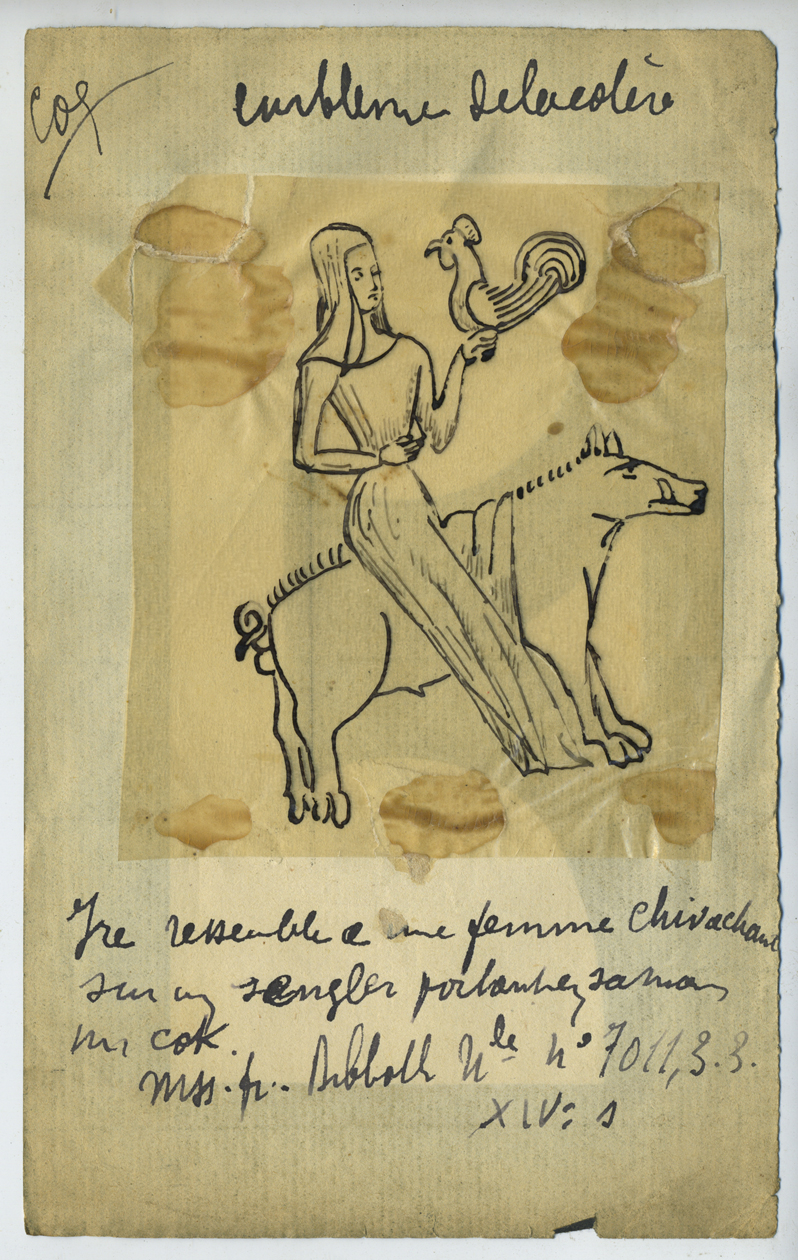 Coq
emblème de la colère
Ire ressemble a une femme chivachant
sur un sengler portant en sa main
un cok.
Mss. fr. Biblioth Nle no 7011, 3.3.
XIVe s